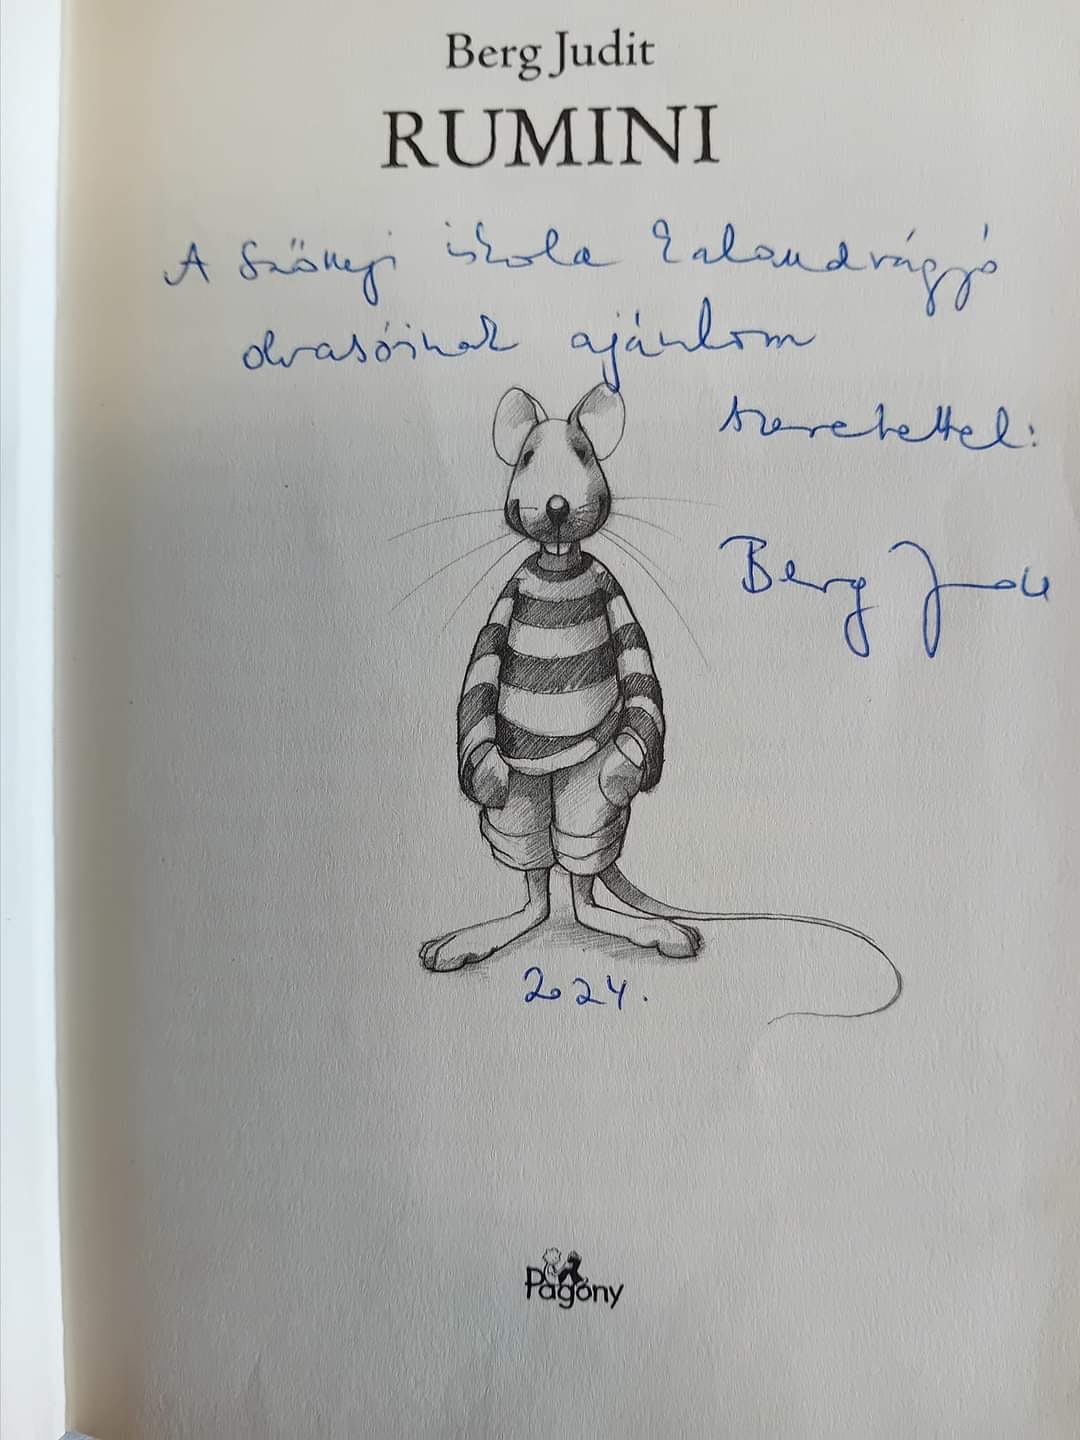 Berg Judit
RUMINI
A Szőnyi iskola kalandvágyó
olvasóinak ajánlom
szeretettel:
Berg Judit
2024.
Pagony